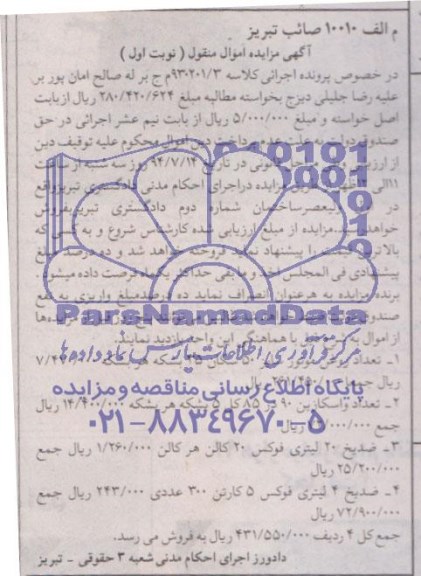 م الف ۱۰۰۱۰ صائب تبریز
آگهی مزایده اموال منقول ( نوبت اول )
در خصوص پرونده اجرائی کلاسه ۹۳۰۲۰۱/۳م ج بر له صالح امان پور بر
علیه رضا جلیلی دیزج بخواسته مطالبه مبلغ ۲۸۰/۴۲۰/۶۲۴ ریال ازبابت
اصل خواسته و مبلغ ۵/۰۰۰/۰۰۰ ریال از بابت نیم عشر اجرائی در حق
صندوق دولت اموال محکوم علیه توقیف دین
از ارزیابی در تاریخ ۹۴/۷/۱۴ روز سه شنبه از ساعت
۱۱الی مزایده دراجرای احکام مدنی دادگستری تبریزواقع
در ولیعصرساختمان شماره دوم دادگستری تبریزبفروش
خواهد مزایده از مبلغ ارزیابی شده کارشناس شروع و به کسی که
بالاترین قیمت را پیشنهاد نماید فروخته خواهد شد و ده درصد مبلغ
پیشنهادی فی المجلس اخذ و ما بقی حداکثر یکماه فرصت داده میشود.
برنده مزایده به هرعنوان انصراف نماید ده درصدمبلغ واریزی به نفع
صندوق
از اموال به با هماهنگی این واحد بازدید نمایند.
ParsNamadData
مرکز فرآوری اطلاعات پارس نماد داده ها
۱- تعداد روغن موتور
ریال جمع
پایگاه اطلاع رسانی مناقصه و مزایده
۲- تعداد واسکازین ۹۰ در ۸۵ کل ۵ بشکه هر بشکه ۱۲/۴۰۰/۰۰۰ ریال
جمع ریال
۰۲۱-۸۸۳۴۹۶۷۰-۵
۳- ضدیخ ۲۰ لیتری فوکس ۲۰ کالن هر کالن ۱/۲۶۰/۰۰۰ ریال جمع
۲۵/۲۰۰/۰۰۰ ریال
۴- ضدیخ ۴ لیتری فوکس ۵ کارتن ۳۰۰ عددی ۲۴۳/۰۰۰ ریال جمع
۷۲/۹۰۰/۰۰۰ ریال
جمع کل ۴ ردیف ۴۳۱/۵۵۰/۰۰۰ ریال به فروش می رسد.
دادورز اجرای احکام مدنی شعبه ۳ حقوقی - تبریز